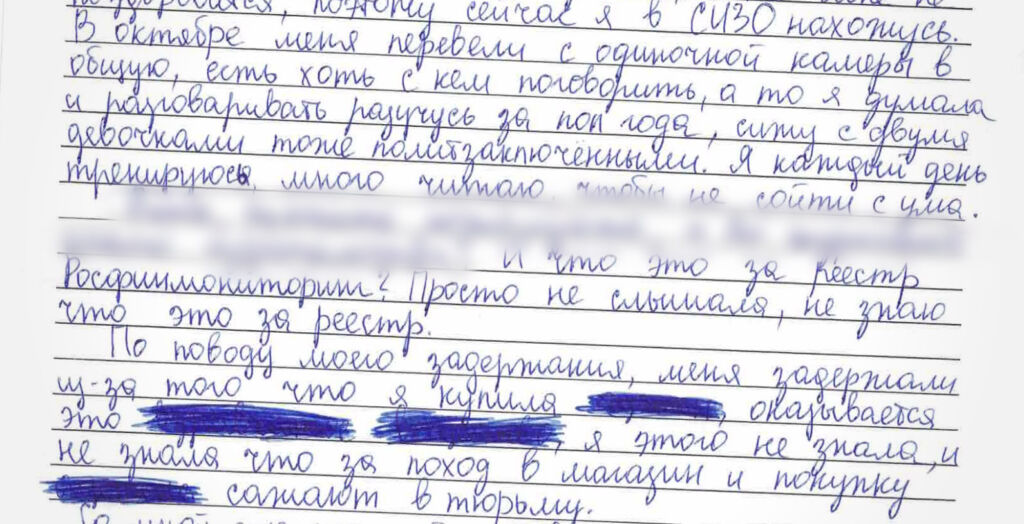 поэтому сейчас я в СИЗО нахожусь.
В октябре меня перевели с одиночной камеры в
общую, есть хоть с кем поговорить, а то я думала
и разговаривать разучусь за пол года, сижу с двумя
девочками тоже политзаключёнными. Я каждый день
тренируюсь, много читаю чтобы не сойти с ума.
И что это за реестр
Росфинмониторинг? Просто не слышала, не знаю
что это за реестр.
По поводу моего задержания, меня задержали
из-за того что я купила , оказывается
это , я этого не знала, и
не знала что за поход в магазин и покупку
сажают в тюрьму.